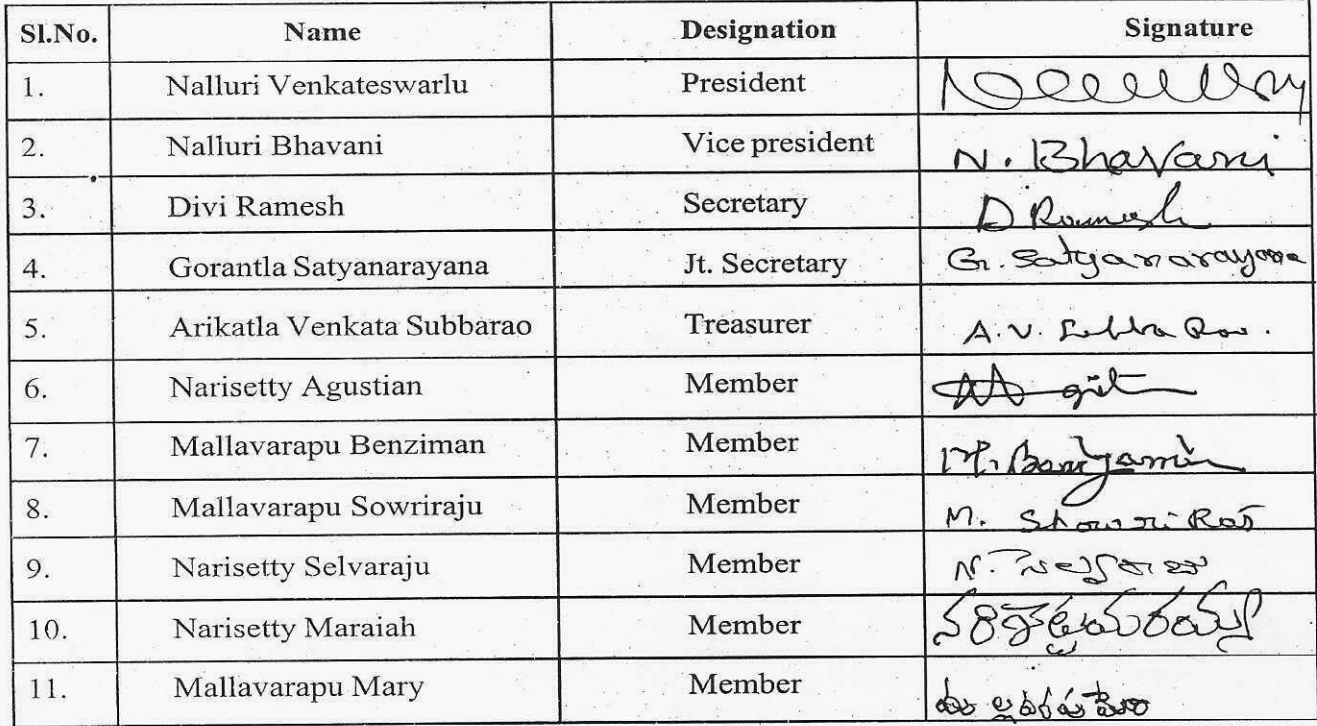 Sl.No. Name Designation Signature
1. Nalluri Venkateswarlu President
2. Nalluri Bhavani Vice president N. Bhavani
3. Divi Ramesh Secretary D Ramesh
4. Gorantla Satyanarayana Jt. Secretary G. Satyanarayana
5. Arikatla Venkata Subbarao Treasurer A.V. Subba Rao.
6. Narisetty Agustian Member
7. Mallavarapu Benziman Member M. Benjamin
8. Mallavarapu Sowriraju Member M. Showri Raj
9. Narisetty Selvaraju Member N. సెల్వరాజు
10. Narisetty Maraiah Member నరిశెట్టి మరయ్య
11. Mallavarapu Mary Member మల్లవరపు మేరి